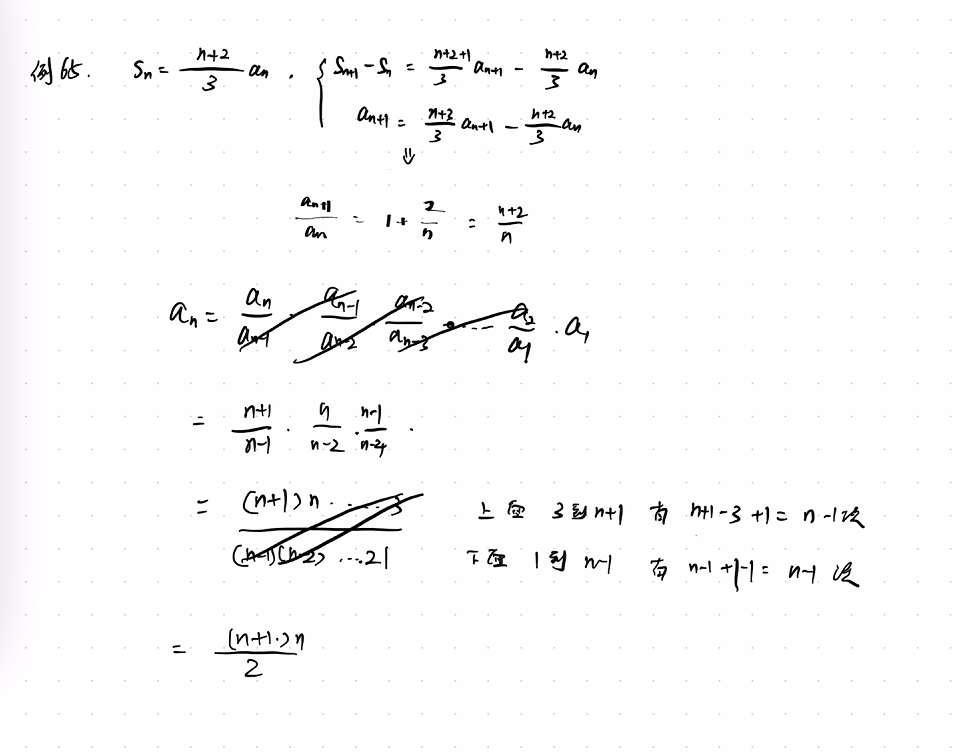 例65. Sn = n+2/3 an . { Sn+1 - Sn = n+2+1/3 an+1 - n+2/3 an
an+1 = n+3/3 an+1 - n+2/3 an
⇓
an+1/an = 1 + 2/n = n+2/n
an = an/an-1 · an-1/an-2 · an-2/an-3 · ---- a2/a1 · a1
= n+1/n-1 · n/n-2 · n-1/n-4 ·
= (n+1)n ····· 3/(n-1)(n-2) ...21 上面 3到n+1 有 n+1-3+1 = n-1次
下面 1到 n-1 有 n-1+1-1 = n-1 次
= (n+1·)n/2